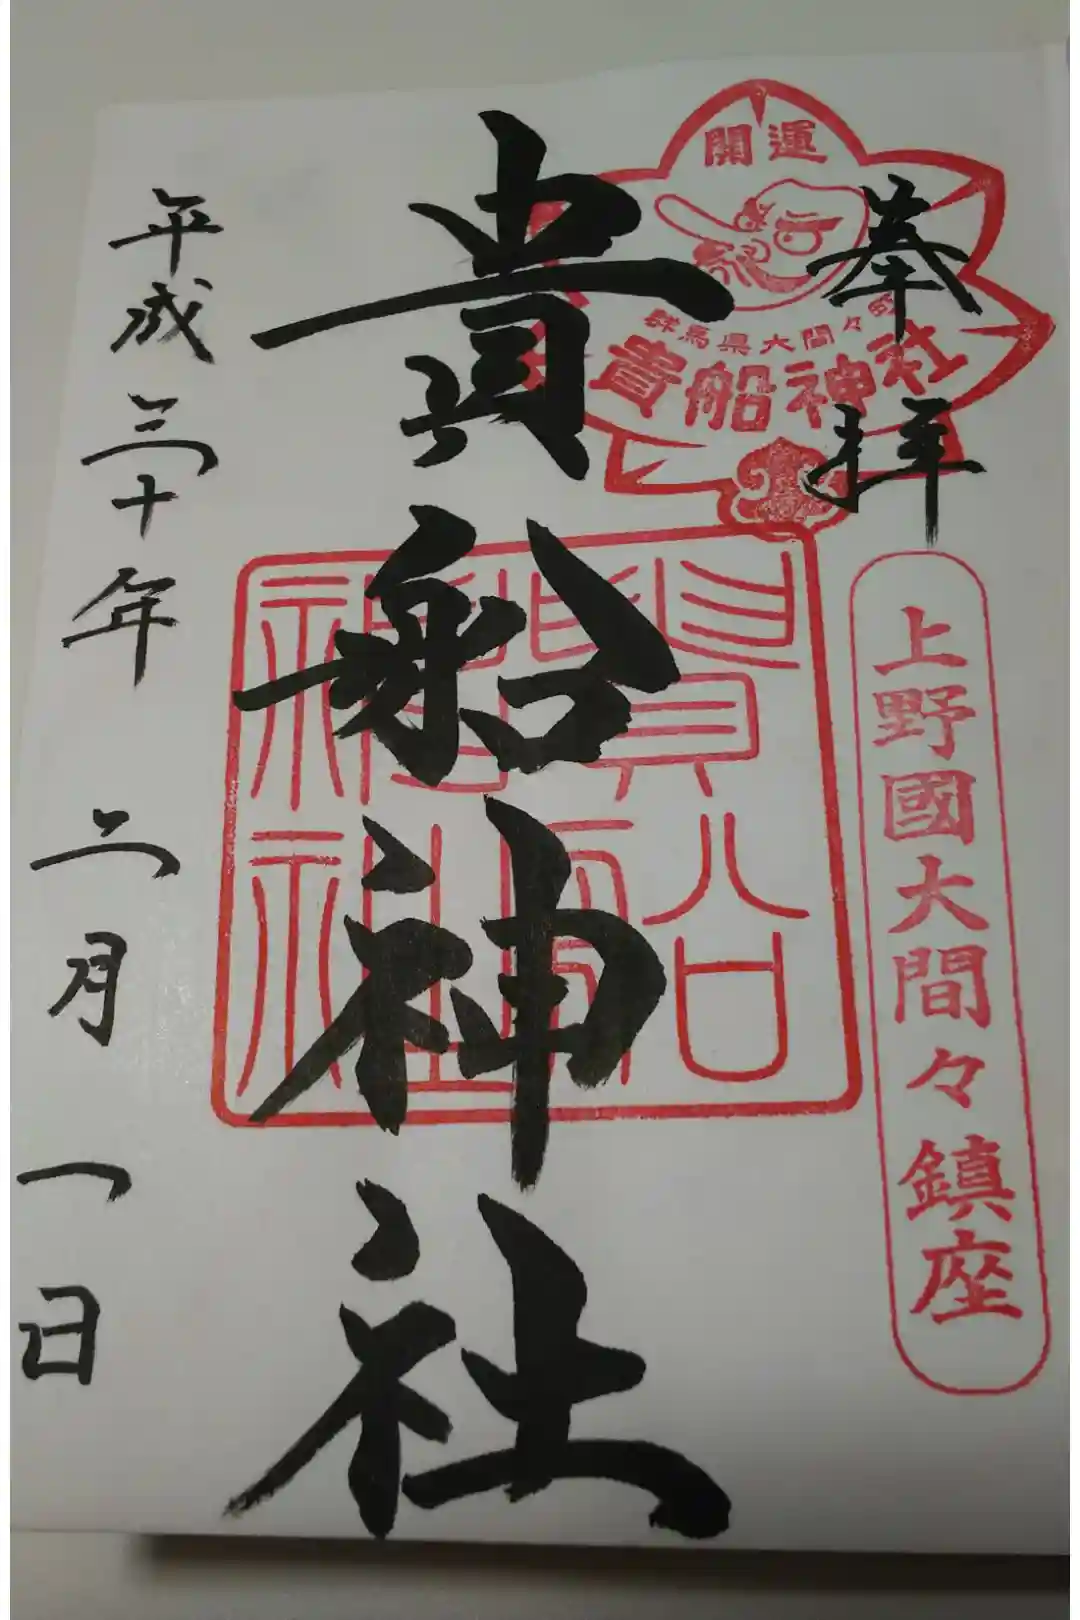 奉拝
開運
群馬県大間々町
貴船神社
上野國大間々鎮座
貴船神社
貴船神社
平成三十年 二月 一日